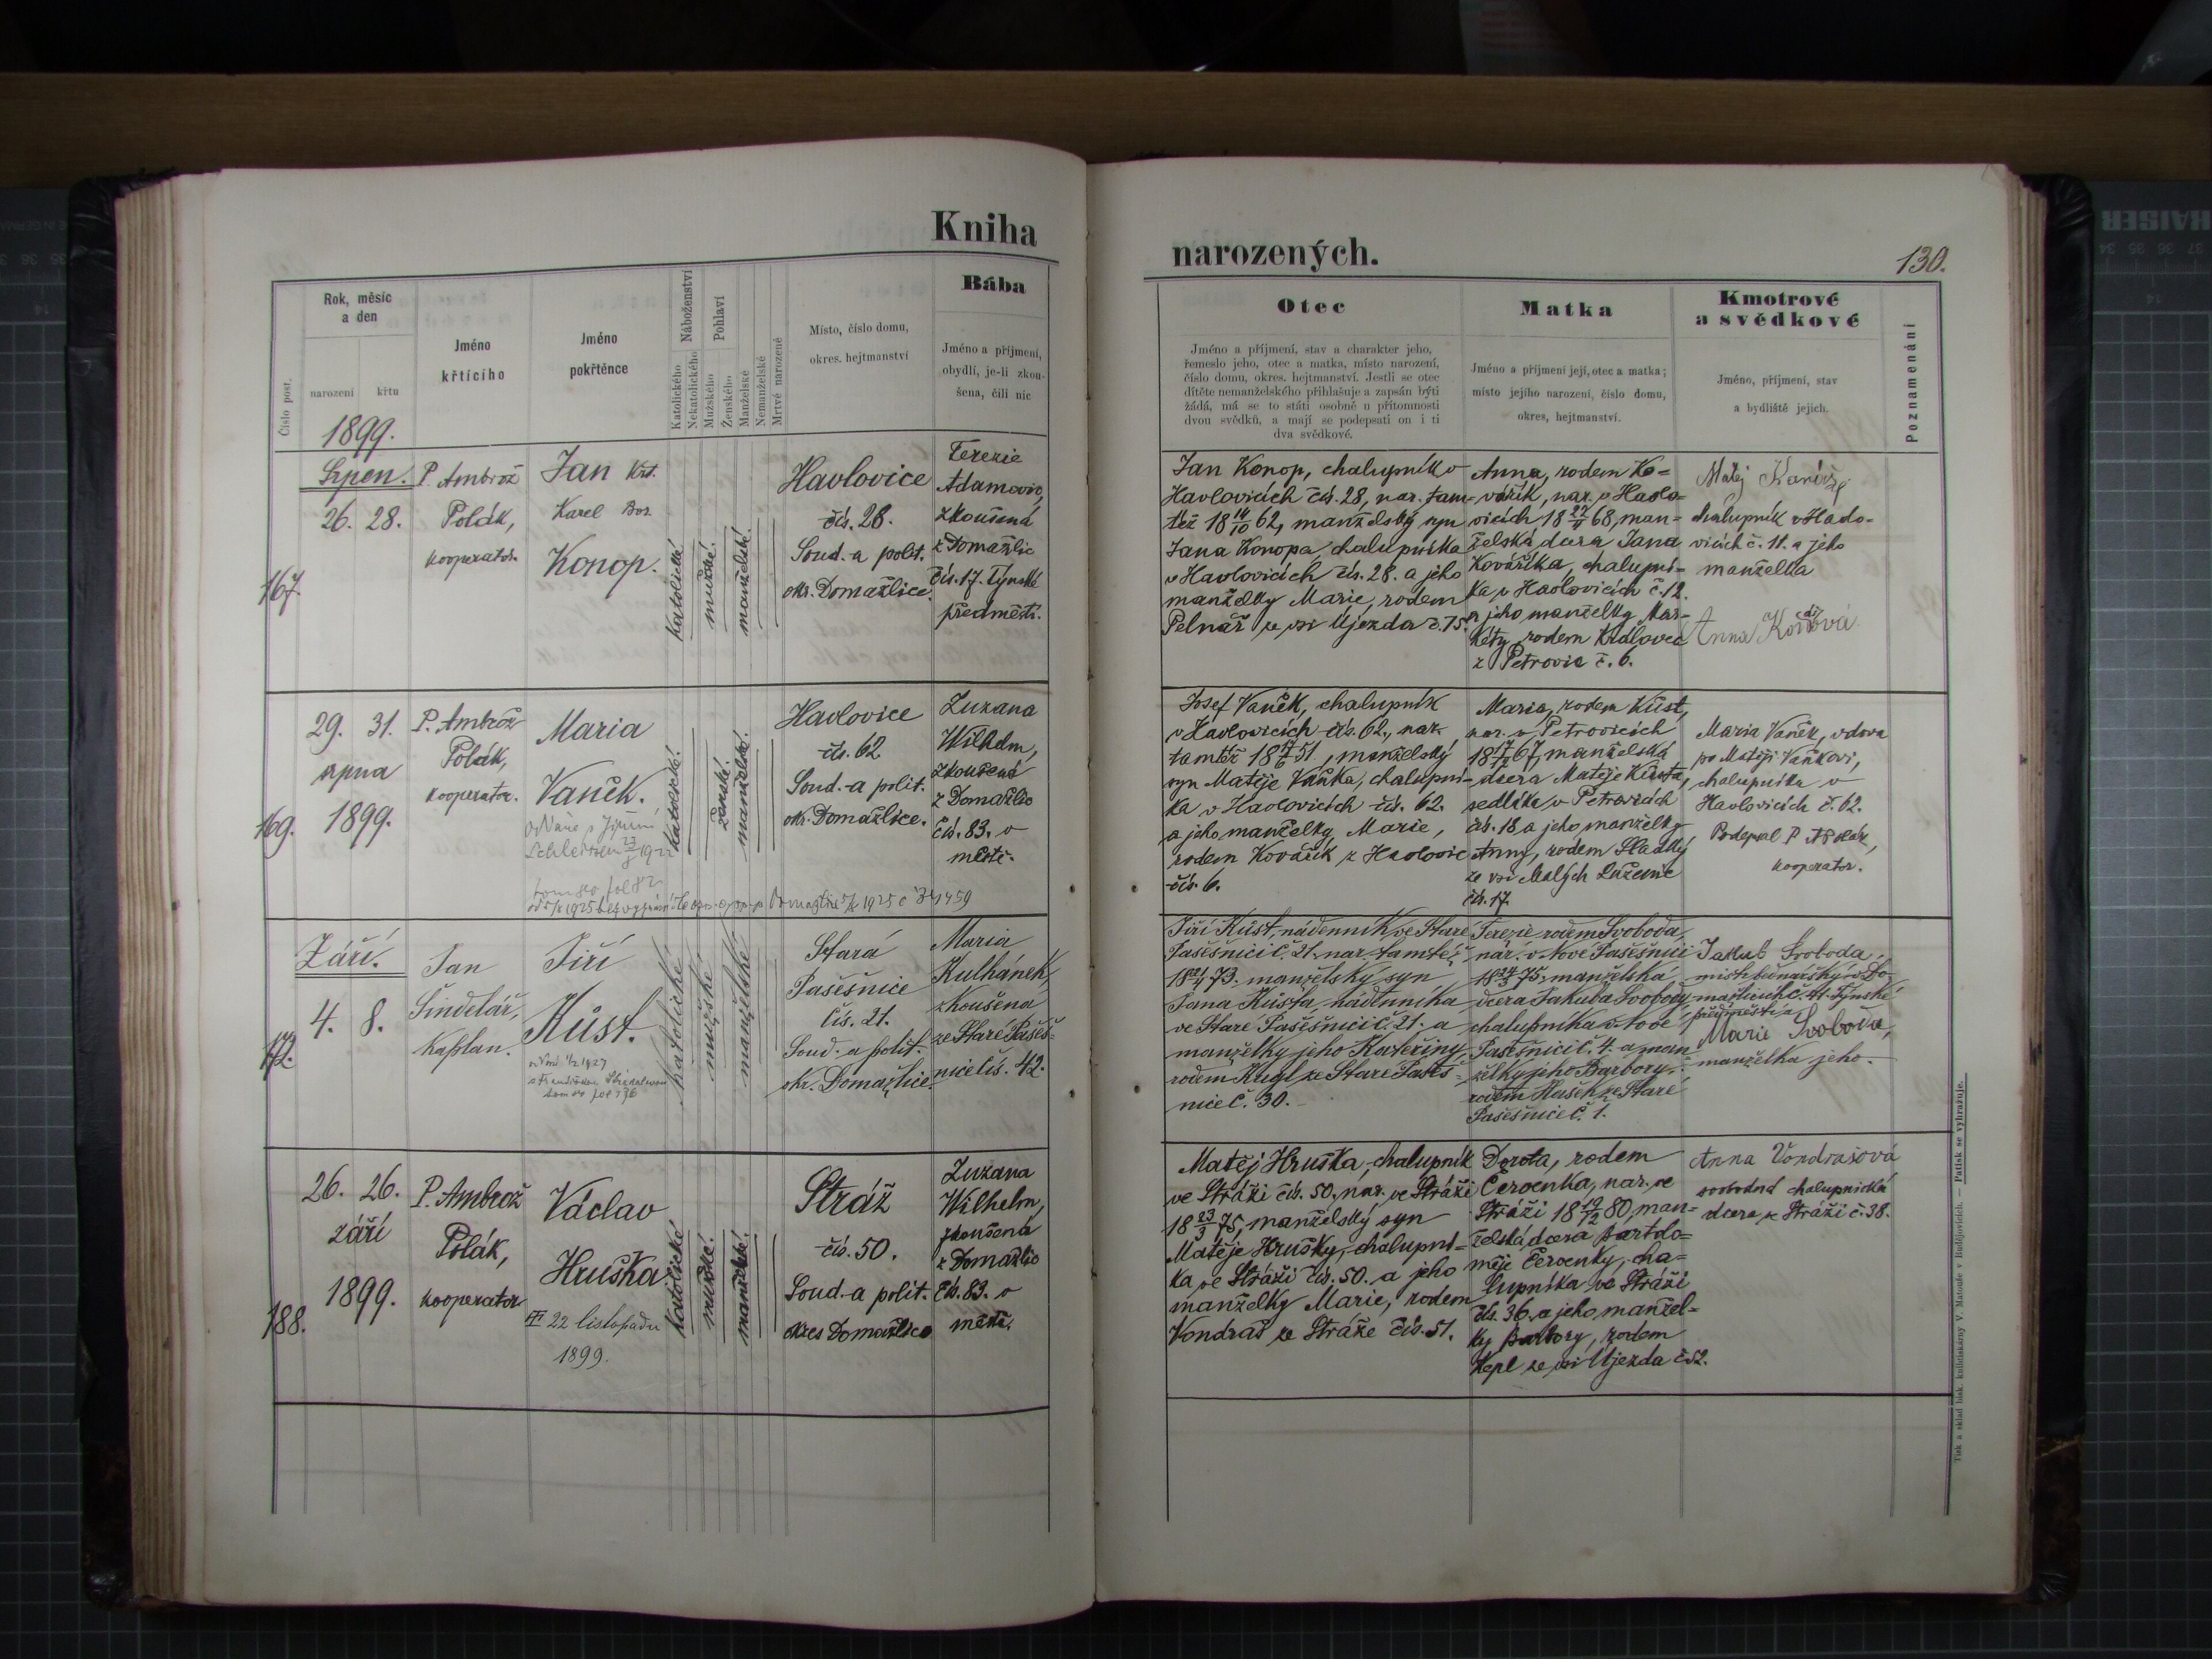 Kniha
Rok, měsíc
a den
narození
křtu
Číslo post.
Jméno
křtícího
Jméno
pokřtěnce
Náboženství
Katolického
Nekatolického
Pohlaví
Mužského
Ženského
Manželské
Nemanželské
Mrtvě narozené
Místo, číslo domu,
okres. hejtmanství
Bába
Jméno a příjmení,
obydlí, je-li zkou-
šena, čili nic
1899.
167.
Srpen.
26. 28.
P. Ambrož
Polák,
kooperator.
Jan Křt.
Karel Bor.
Konop.
katolické.
mužské.
manželské.
Havlovice
čís. 28.
Soud. a polit.
okr. Domažlice.
Terezie
Adamovic,
zkoušená
z Domažlic
čís. 17. Týnské
předměstí.
169.
29. 31.
srpna
1899.
P. Ambrož
Polák,
kooperator.
Maria
Vaněk.
katolické.
ženské.
manželské.
Havlovice
čís. 62
Soud. a polit.
okr. Domažlice.
Zuzana
Wilhelm,
zkoušená
z Domažlic
čís. 83. v
městě.
172.
Září.
4. 8.
Jan
Šindelář,
kaplan.
Jiří
Kůst.
katolické
mužské
manželské
Stará
Pasešnice
čís. 21.
Soud. a polit.
okr. Domažlice.
Maria
Kulhánek,
zkoušena
ze Staré Paseš-
nice čís. 42.
188.
26. 26.
září
1899.
P. Ambrož
Polák,
kooperator
Václav
Hruška
22 listopadu
1899.
katolické
mužské.
manželské.
Stráž
čís. 50.
Soud. a polit.
okres Domažlice
Zuzana
Wilhelm,
zkoušená
z Domažlic
čís. 83. v
městě.
narozených.
130.
Otec
Jméno a příjmení, stav a charakter jeho,
řemeslo jeho, otec a matka, místo narození,
číslo domu, okres. hejtmanství. Jestli se otec
dítěte nemanželského přihlašuje a zapsán býti
žádá, má se to státi osobně u přítomnosti
dvou svědků, a mají se podepsati on i ti
dva svědkové.
Matka
Jméno a příjmení její, otec a matka;
místo jejího narození, číslo domu,
okres, hejtmanství.
Kmotrové
a svědkové
Jméno, příjmení, stav
a bydliště jejich.
Poznamenání
Jan Konop, chalupník v
Havlovicích čís. 28, nar. tam-
též 18 14/10 62, manželský syn
Jana Konopa, chalupníka
v Havlovicích čís. 28. a jeho
manželky Marie, rodem
Pelnář ze vsi Újezda č. 75.
Anna, rodem Ko-
vářík, nar. v Havlo-
vicích 18 27/4 68, man-
želská dcera Jana
Kováříka, chalupní-
ka v Havlovicích č. 12.
a jeho manželky Mar-
kéty, rodem Královec
z Petrovic č. 6.
Matěj
chalupník v Havlo-
vicích č. 11. a jeho
manželka
Anna
Josef Vaněk, chalupník
v Havlovicích čís. 62., nar.
tamtéž 18 17/6 51, manželský
syn Matěje Vaňka, chalupní-
ka v Havlovicích čís. 62.
a jeho manželky Marie,
rodem Kovářík z Havlovic
čís. 6.
Maria, rodem Kůst,
nar. v Petrovicích
67, manželská
dcera Matěje Kůsta,
sedláka v Petrovicích
čís. 18 a jeho manželky
Anny, rodem Sladký
ze vsi Malých Luženic
čís. 17.
Maria Vaněk, vdova
po Matěji Vaňkovi,
chalupníka v
Havlovicích č. 62.
Podepsal P. A. Polák,
kooperator.
Jiří Kůst, nádenník ve Staré
Pasešnici č. 21. nar. tamtéž
18 22/4 73. manželský syn
Jana Kůsta, nádenníka
ve Staré Pasešnici č. 21. a
manželky jeho Kateřiny,
rodem Kugl ze Staré Paseš-
nice č. 30.
Terezie rodem Svoboda,
nar. v Nové Pasešnici
18 24/3 75. manželská
dcera Jakuba Svobody,
chalupníka v Nové
Pasešnici č. 4. a man-
želky jeho Barbory,
rodem Hašek ze Staré
Pasešnice č. 1.
Jakub Svoboda,
mistr bednářský v Do-
mažlicích č. 41. Týnské
předměstí a
Marie Svoboda,
manželka jeho.
Matěj Hruška, chalupník
ve Stráži čís. 50, nar. ve Stráži
18 23/3 75, manželský syn
Matěje Hrušky, chalupní-
ka ve Stráži čís. 50. a jeho
manželky Marie, rodem
Vondraš ze Stráže čís. 51.
Dorota, rodem
Červenka, nar. ve
Stráži 18 19/12 80, man-
želská dcera Bartolo-
měje Červenky, cha-
lupníka ve Stráži
čís. 36. a jeho manžel-
ky Barbory, rodem
Kepl ze vsi Újezda č. 52.
Anna Vondrašová
svobodná chalupnická
dcera ze Stráži č. 38.
Tisk a sklad knih. knihtiskárny V. Matouše v Budějovicích. — Patisk se vyhražuje.